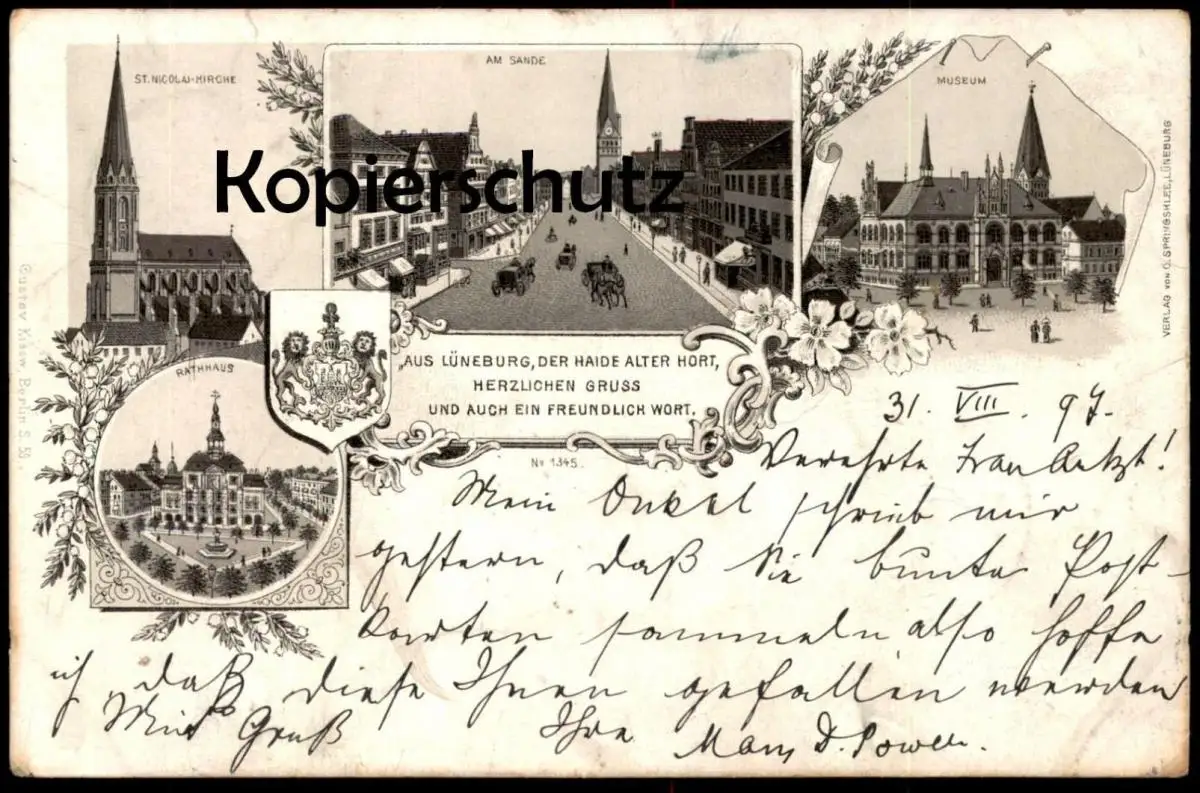 ST. NICOLAI-KIRCHE
AM SANDE
MUSEUM
Kopierschutz
VERLAG VON O. SPRINGSKLEE, LÜNEBURG
Gustav Kühn Berlin S. 59.
RATHHAUS
„AUS LÜNEBURG, DER HAIDE ALTER HORT,
HERZLICHEN GRUSS
UND AUCH EIN FREUNDLICH WORT.
No 1345.
31. VIII. 97.
Verehrte Frau
Mein Onkel schrieb mir
gestern, daß Sie bunte Post-
karten sammeln also hoffe
ich, daß diese Ihnen gefallen werden
Mit Gruß Ihre Mary D. Powell.